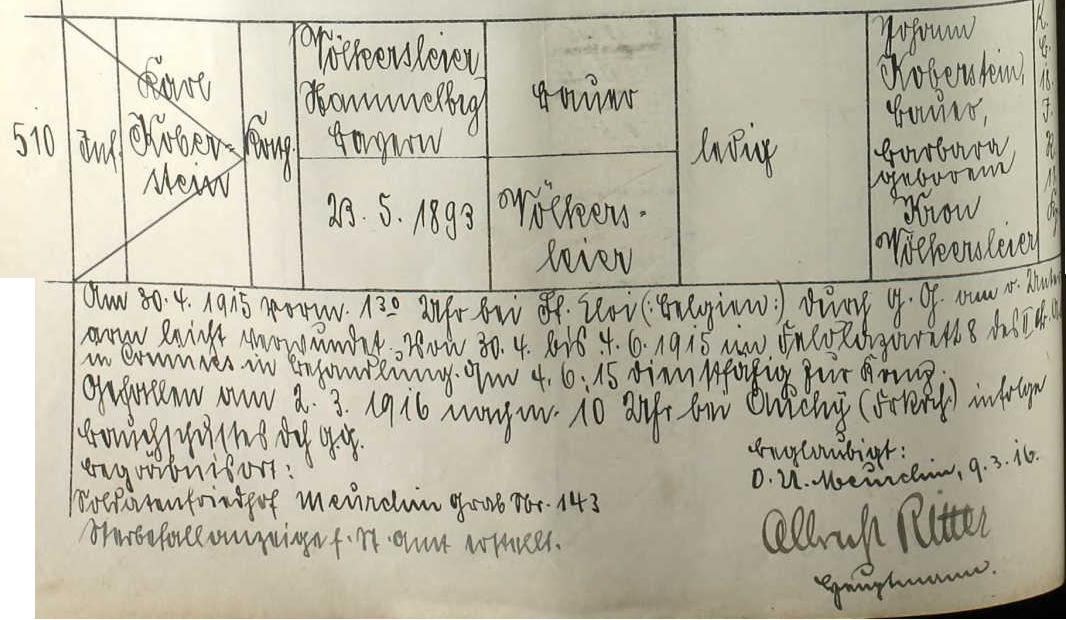 510
Inf.
Karl
Kober-
stein
Völkersleier
Hammelbrg
Bayern
23. 5. 1893
Bauer
Völkers-
leier
ledig
Johann
Koberstein,
Bauer,
Barbara
geborene
Kron
Völkersleier
Am 30.4. 1915 vorm. 1³⁰ Uhr bei St. Eloi (: Belgien :) durch G. G. am r.
arm leicht verwundet. Von 30.4. bis 4.6.1915 im Feldlazarett 8 des II.
in Comines in Behandlung. Am 4.6.15 dienstfähig zur Komp.
Gefallen am 2. 3. 1916 nachm. 10 Uhr bei Auchy (Frkrch.) infolge
Bauchschusses dch G.G.
Begräbnisort:
Soldatenfriedhof Meurchin Grab Nr. 143
Sterbefallanzeige f. St. Amt erstellt.
Beglaubigt:
O. U. Meurchin, 9.3.16.
Albrecht Ritter
Hauptmann.